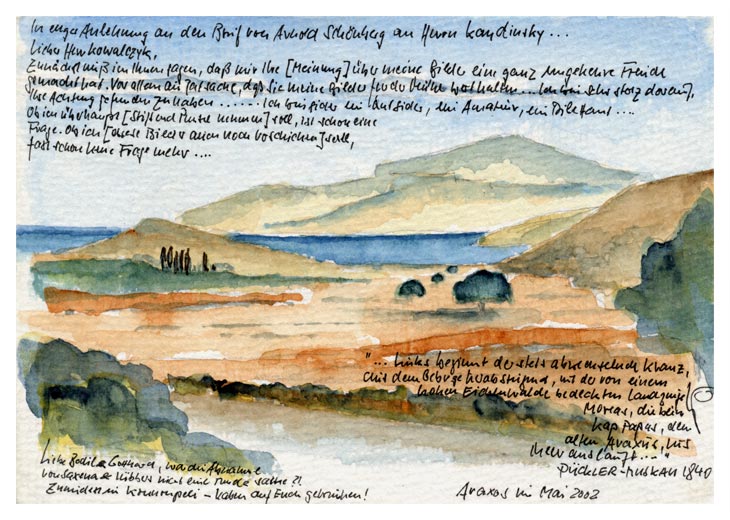 In enger Anlehnung an den Brief von Arnold Schönberg an Herrn Kandinsky ...
Lieber Herr Kowalczyk,
Zunächst muß ich Ihnen sagen, daß mir Ihre [Meinung] über meine Bilder eine ganz ungeheure Freude
gemacht hat. Vor allem die Tatsache, daß Sie meine Bilder für der Mühe wert halten... Ich bin sehr stolz darauf,
Ihre Achtung gefunden zu haben ...... Ich bin sicher ein Outsider, ein Amateur, ein Dilettant....
Ob ich überhaupt [Stift und Pinsel nehmen] soll, ist schon eine
Frage. Ob ich [diese Bilder auch noch verschicken] soll,
fast schon keine Frage mehr ....
"... Links beginnt der stets abwechselnde Kranz,
mit dem Gebirge, und der von einem
hohen Eichenwalde bedeckten Landzunge
Moreas, die beim
Kap Papas, dem
alten Araxus, ins
Meer ausläuft ..."
PÜCKLER-MUSKAU 1840
Liebe Bodil & Gotthard, war die
von nicht eine runde Sache?!
Zumindest in - haben auf Euch getrunken!
Araxos im Mai 2002